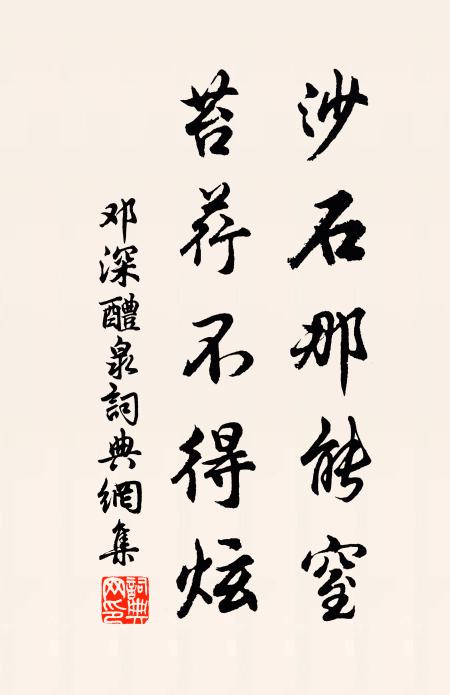 沙石那能窒
苔荇不得炫
邓深醴泉詞典網集
詞典网印